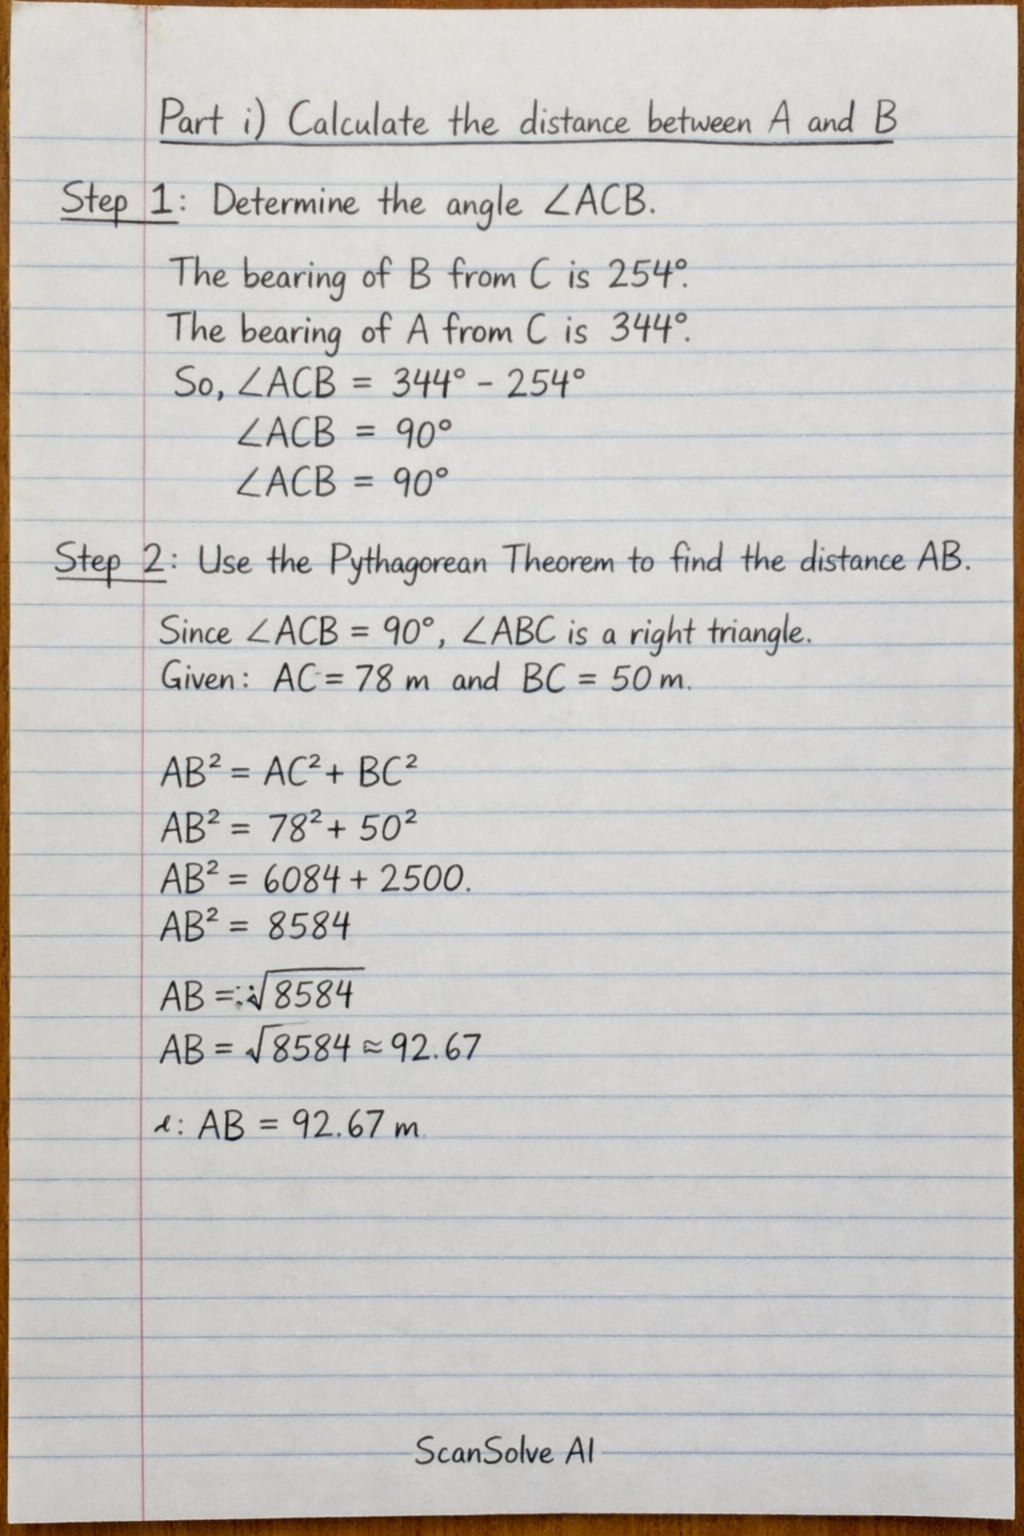 Part i) Calculate the distance between A and B
Step 1: Determine the angle ∠ACB.
The bearing of B from C is 254°.
The bearing of A from C is 344°.
So, ∠ACB = 344° - 254°
∠ACB = 90°
∠ACB = 90°
Step 2: Use the Pythagorean Theorem to find the distance AB.
Since ∠ACB = 90°, ∠ABC is a right triangle.
Given: AC = 78 m and BC = 50 m.
AB² = AC² + BC²
AB² = 78² + 50²
AB² = 6084 + 2500.
AB² = 8584
AB = √8584
AB = √8584 ≈ 92.67
: AB = 92.67 m
ScanSolve AI